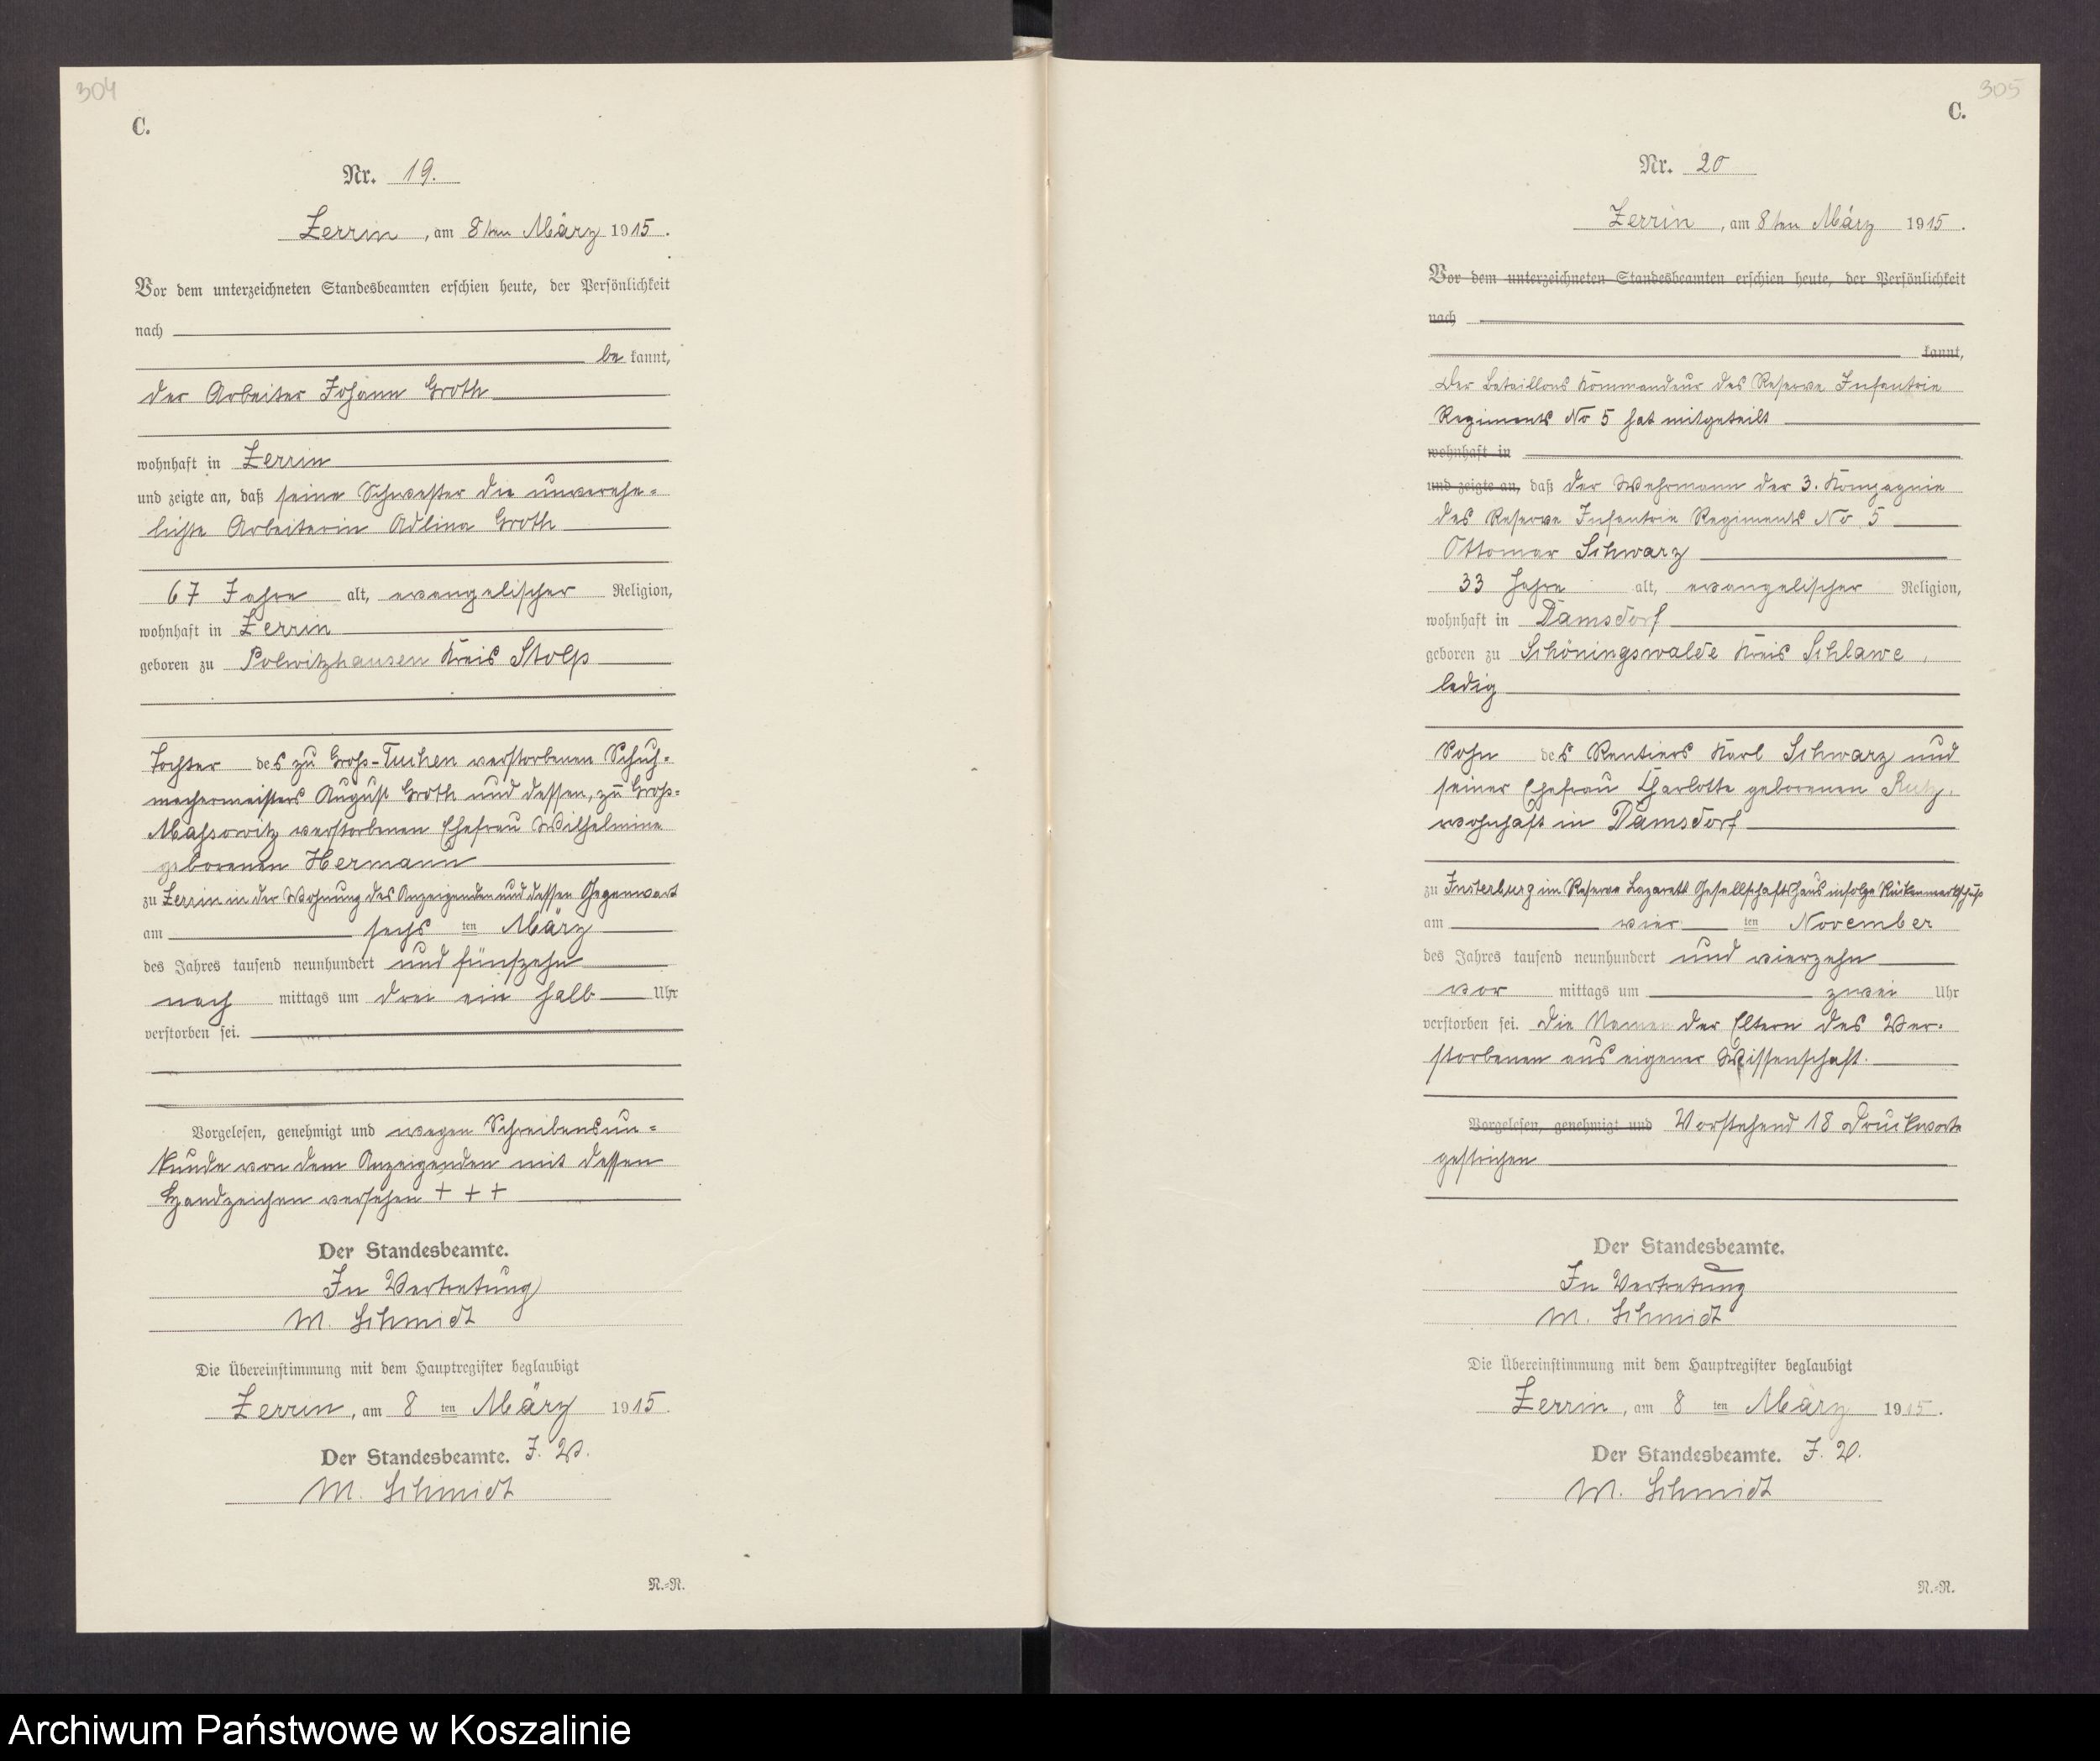 304
C.
Nr. 19.
Zerrin, am 8ten März 1915.
Vor dem unterzeichneten Standesbeamten erschien heute, der Persönlichkeit
nach
be kannt,
der Arbeiter Johann Groth
wohnhaft in Zerrin
und zeigte an, daß seine Schwester die unverehe=
lichte Arbeiterin Adline Groth
67 Jahre alt, evangelischer Religion,
wohnhaft in Zerrin
geboren zu Polwitzhausen Kreis Stolp
Tochter des zu Groß-Tuchen verstorbenen Schuh=
machermeisters August Groth und dessen, zu Groß=
Massowitz verstorbenen Ehefrau Wilhelmine
geborenen Hermann
zu Zerrin in der Wohnung des Anzeigenden und dessen Gegenwart
am sechs ten März
des Jahres tausend neunhundert und fünfzehn
nach mittags um drei ein halb Uhr
verstorben sei.
Vorgelesen, genehmigt und wegen Schreibensun=
kunde von dem Anzeigenden mit dessen
Handzeichen versehen + + +
Der Standesbeamte.
In Vertretung
M. Schmidt
Die Übereinstimmung mit dem Hauptregister beglaubigt
Zerrin, am 8 ten März 1915.
Der Standesbeamte. I. V.
M. Schmidt
N.=N.
305
C.
Nr. 20
Zerrin, am 8ten März 1915.
Vor dem unterzeichneten Standesbeamten erschien heute, der Persönlichkeit
nach
kannt,
Der Bataillons Kommandeur des Reserve Infantrie
Regiments No 5 hat mitgeteilt
wohnhaft in
und zeigte an, daß der Wehrmann der 3. Kompagnie
des Reserve Infantrie Regiments No 5
Ottomar Schwarz
33 Jahre alt, evangelischer Religion,
wohnhaft in Damsdorf
geboren zu Schöningswalde Kreis Schlawe,
ledig
Sohn des Rentiers Karl Schwarz und
seiner Ehefrau Charlotte geborenen Rutz,
wohnhaft in Damsdorf
zu Insterburg im Reserve Lazarett Gesellschaftshaus infolge Rückenmarkschuß
am vier ten November
des Jahres tausend neunhundert und vierzehn
vor mittags um zwei Uhr
verstorben sei. Die Namen der Eltern des Ver=
storbenen aus eigener Wissenschaft.
Vorgelesen, genehmigt und Vorstehend 18 Druckworte
gestrichen
Der Standesbeamte.
In Vertretung
M. Schmidt
Die Übereinstimmung mit dem Hauptregister beglaubigt
Zerrin, am 8 ten März 1915.
Der Standesbeamte. I. V.
M. Schmidt
N.=N.
Archiwum Państwowe w Koszalinie